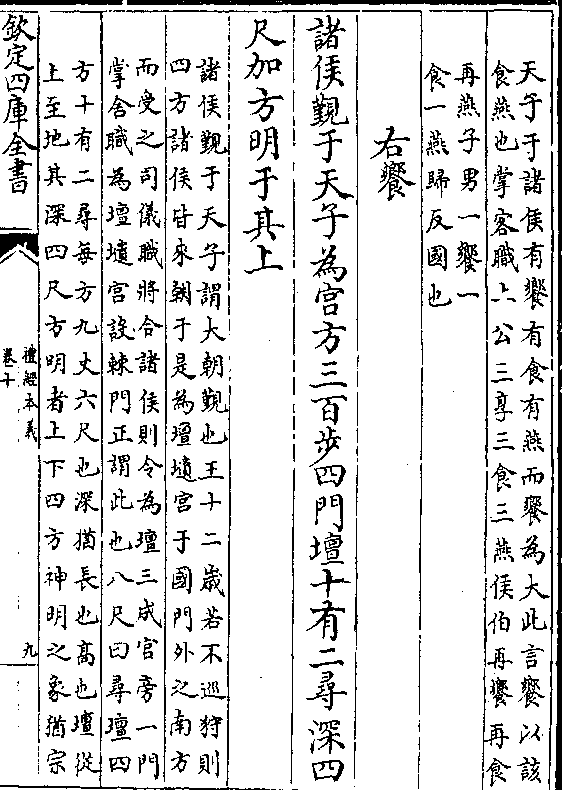 天子于諸侯有饗有食有燕而饗為大此言饗以該
食燕也掌客職上公三享三食三燕侯伯再饗再食
再燕子男一饗一
食一燕歸反國也
右饗
諸侯覲于天子為宫方三百步四門壇十有二尋深四
尺加方明于其上
諸侯覲于天子謂大朝覲也王十二歲若不巡狩則
四方諸侯皆來朝于是為壇壝宫于國門外之南方
而受之司儀職將合諸侯則令為壇三成宫旁一門
掌舍職為壇壝宫設棘門正謂此也八尺曰尋壇四
方十有二尋每方九丈六尺也深猶長也高也壇從
上至地其深四尺方明者上下四方神明之象猶宗
欽定四庫全書
禮經本義
卷十
九